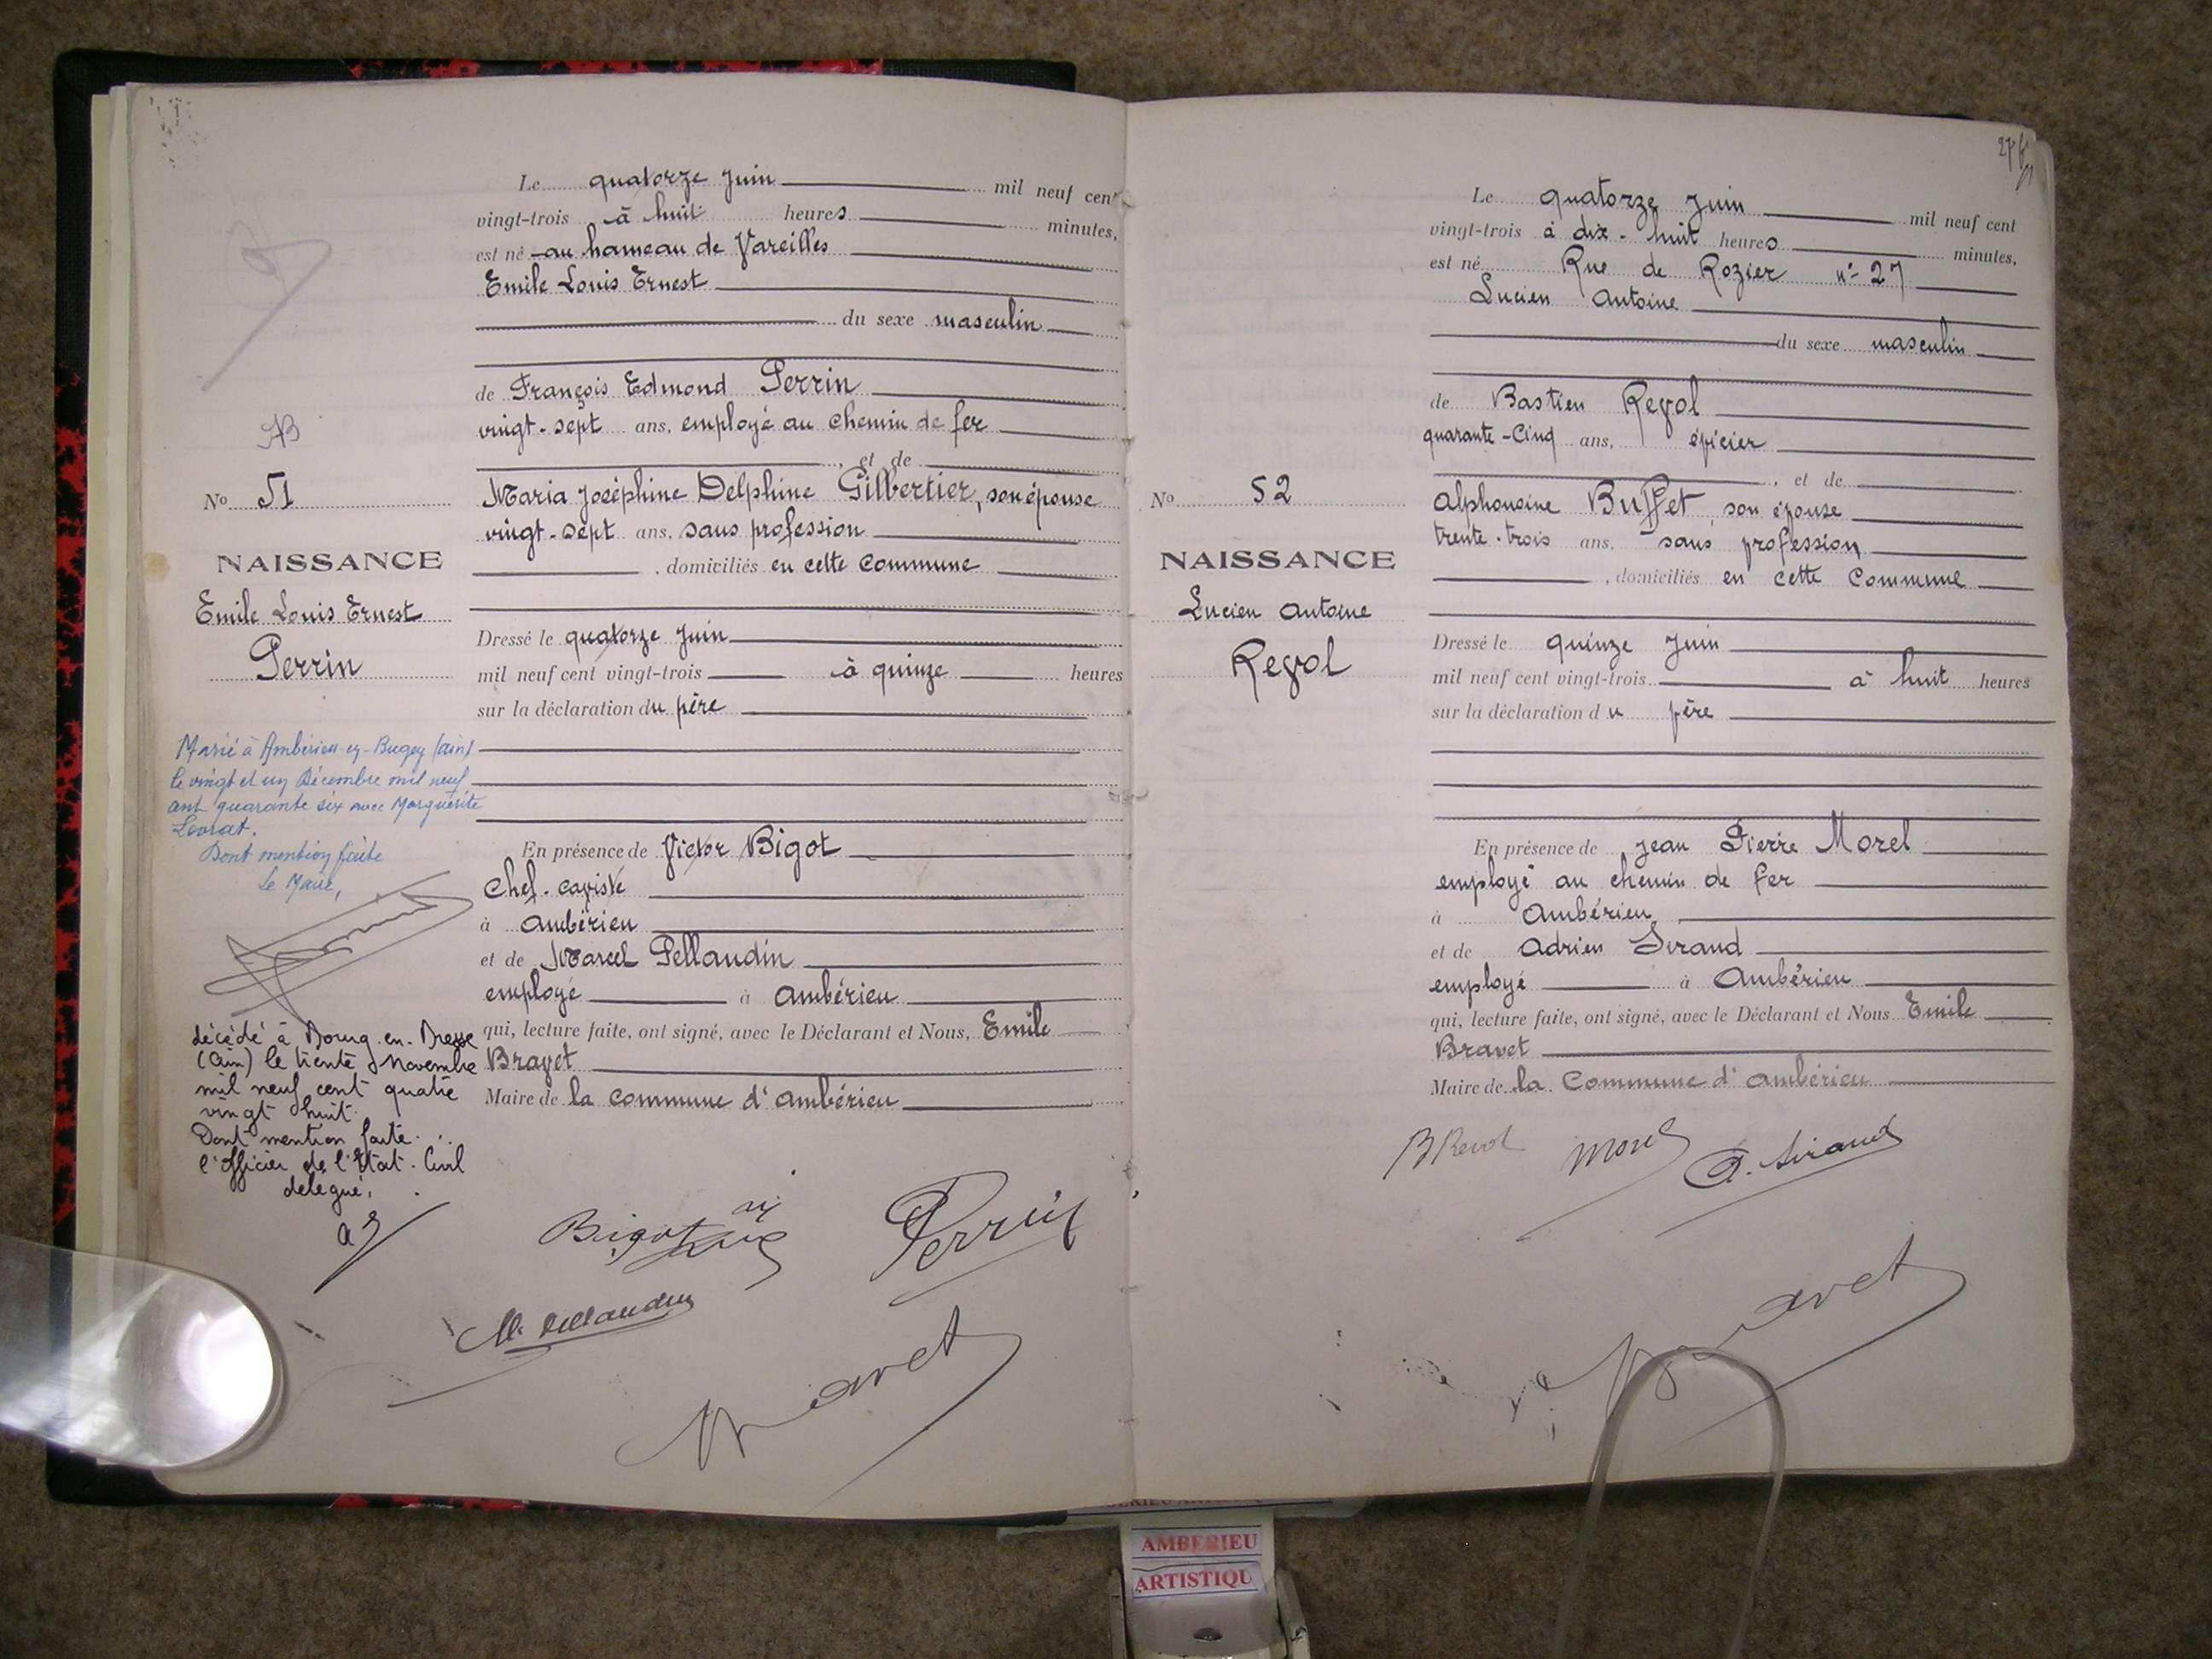 Le quatorze Juin mil neuf cent
vingt-trois à huit heures minutes,
est né au hameau de Vareilles
Emile Louis Ernest
du sexe masculin
de François Edmond Perrin
vingt-sept ans, employé au chemin de fer
et de
Maria Joséphine Delphine Gilbertier, son épouse
vingt-sept ans, sans profession
, domiciliés en cette commune
Dressé le quatorze Juin
mil neuf cent vingt-trois à quinze heures
sur la déclaration du père
En présence de Victor Bigot
Chef-caviste
à Ambérieu
et de Marcel Pellaudin
employé à Ambérieu
qui, lecture faite, ont signé, avec le Déclarant et Nous, Emile
Bravet
Maire de la commune d'Ambérieu
AB
No 51
NAISSANCE
Emile Louis Ernest
Perrin
Marié à Ambérieu-en-Bugey (Ain)
le vingt et un Décembre mil neuf
cent quarante six avec Marguerite
Levrat.
Dont mention faite
Le Maire,
décédé à Bourg-en-Bresse
(Ain) le trente Novembre
mil neuf cent quatre
vingt huit.
Dont mention faite.
l'officier de l'Etat-Civil
délégué,
Bigot
Perrin
M. Pellaudin
Bravet
27
Le quatorze Juin mil neuf cent
vingt-trois à dix-huit heures minutes,
est né Rue de Rozier n° 27
Lucien Antoine
du sexe masculin
de Bastien Revol
quarante-cinq ans, épicier
, et de
Alphonsine Buffet, son épouse
trente-trois ans, sans profession
, domiciliés en cette Commune
Dressé le quinze Juin
mil neuf cent vingt-trois à huit heures
sur la déclaration du père
En présence de Jean Pierre Morel
employé au chemin de fer
à Ambérieu
et de Adrien Siraud
employé à Ambérieu
qui, lecture faite, ont signé, avec le Déclarant et Nous Emile
Bravet
Maire de la Commune d'Ambérieu
No 52
NAISSANCE
Lucien Antoine
Revol
B Revol Morel A. Siraud
Bravet
AMBERIEU
ARTISTIQU